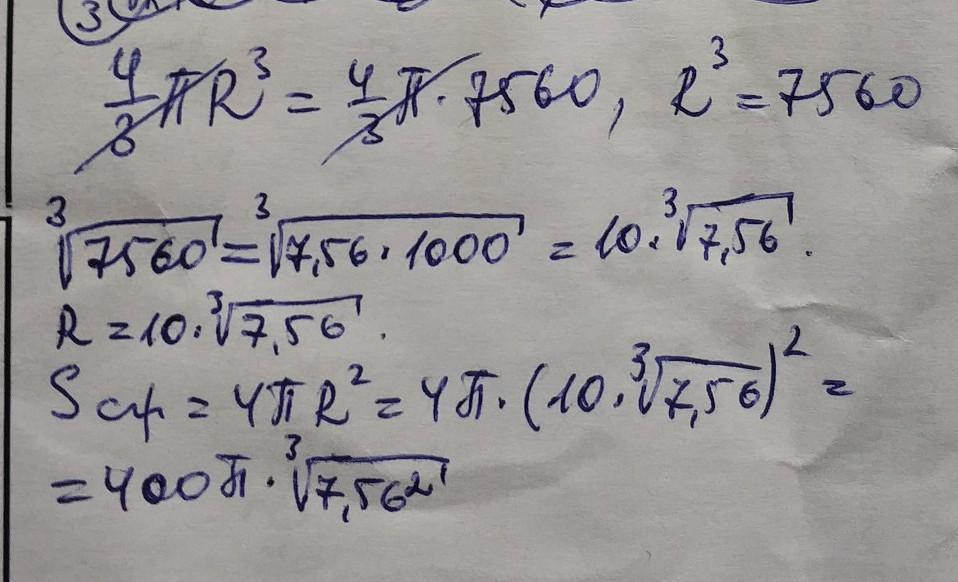 4/3 πR³ = 4/3 π · 7560, R³ = 7560
∛7560 = ∛7,56 · 1000 = 10 · ∛7,56.
R = 10 · ∛7,56.
Sсф = 4πR² = 4π · (10 · ∛7,56)² =
= 400π · ∛7,56²